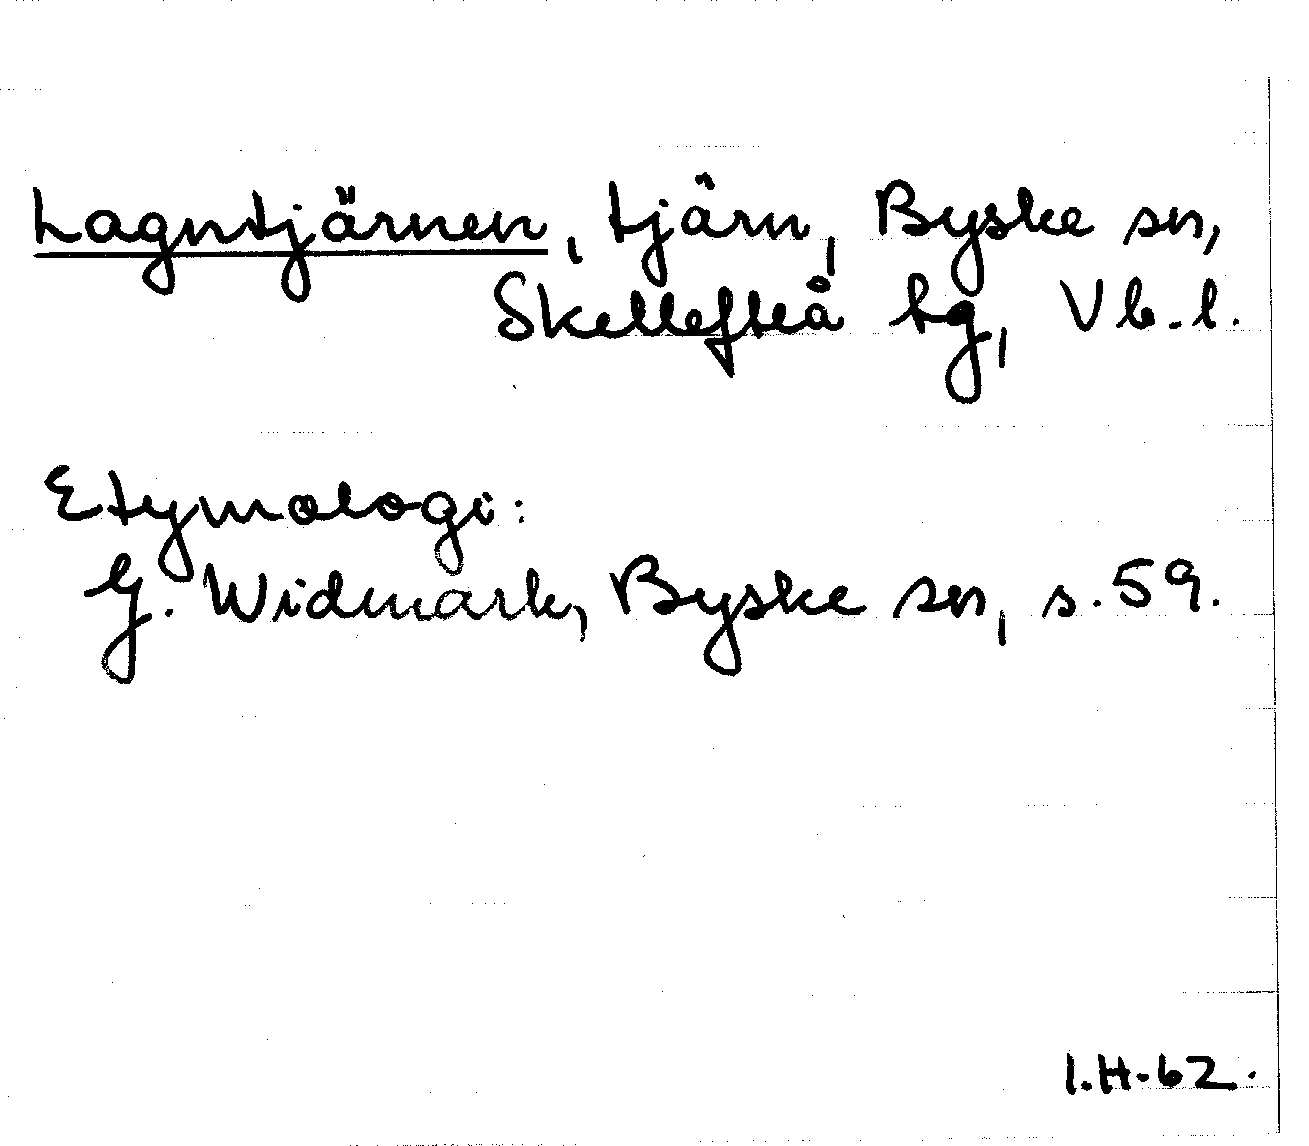 Lagntjärnen, tjärn, Byske sn,
Skellefteå tg, Vb.l.
Etymologi:
G. Widmark, Byske sn, s. 59.
I.H-62.